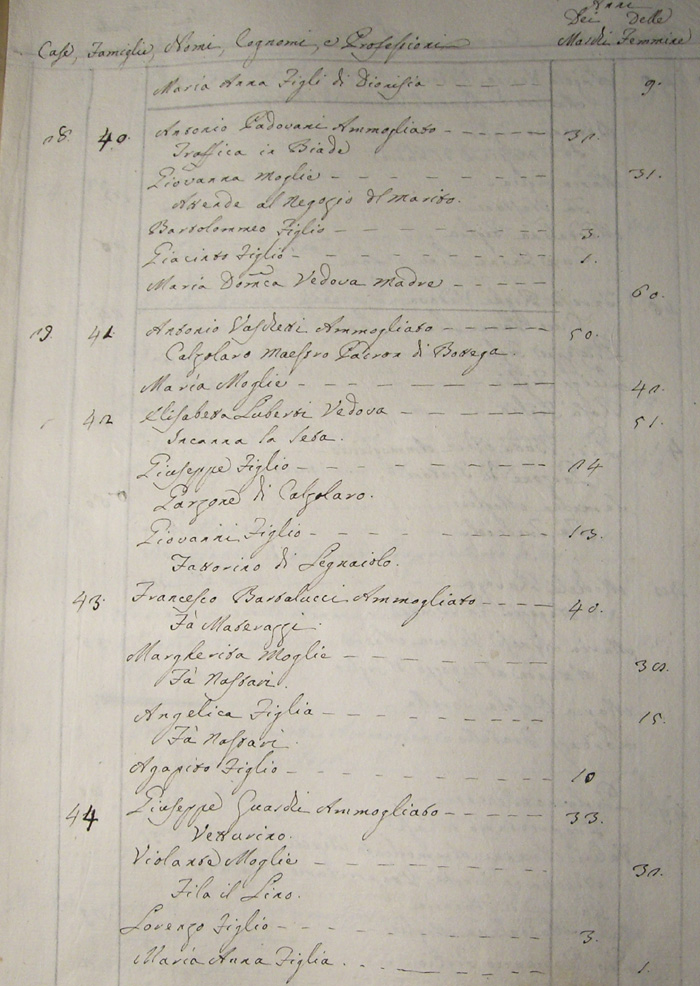 Anni
Case, Famiglie, Nomi, Cognomi, e Professioni Dei Maschi Delle Femmine
Maria Anna Figli di Dionisia 9.
28. 40. Antonio Padovani Ammogliato 32.
Traffica in Biade
Giovanna Moglie 31.
Attende al Negozio del Marito.
Bartolommeo Figlio 3.
Giacinto Figlio 1.
Maria Domca Vedova Madre 60.
29. 41 Antonio Ammogliato 50.
Calzolaro Maestro Padron di Bottega
Maria Moglie 42.
42 Elisabetta Luberti Vedova 51.
Incanna la Seta.
Giuseppe Figlio 24
Garzone di Calzolaro.
Giovanni Figlio 13.
Fattorino di Legnaiolo.
43. Francesco Bartalucci Ammogliato 40.
Fà Materazzi.
Margherita Moglie 32.
Fà Nastari.
Angelica Figlia 15
Fà Nastari.
Agapito Figlio 10
44 Giuseppe Guardi Ammogliato 33.
Vetturino.
Violante Moglie 32.
Fila il Lino.
Lorenzo Figlio 3.
Maria Anna Figlia 1.